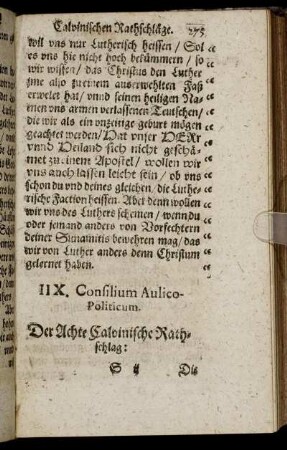 Calvinischen Rathschläge. 275
wil vns nur Lutherisch heissen / Sol
es vns hie nicht hoch bekümmern / so
wir wissen / das Christus den Luther
jme also zu einem ausserwehlten Faß
erwelet hat / vnnd seinen heiligen Na-
men vns armen verlassenen Teutschen /
die wir als ein vnzeitige geburt mögen
geachtet werden / Hat vnser HERr
vnnd Heiland sich nicht geschä-
met zu einem Apostel / wollen wir
vns auch lassen leicht sein / ob vns
schon du vnd deines gleichen / die Luthe-
rische Faction heissen. Aber denn wollen
wir vns des Luthers schemen / wenn du
oder jemand anders von Vorfechtern
deiner bewehren mag / das
wir von Luther anders denn Christum
gelernet haben.
IIX. Consilium Aulico-
Politicum.
Der Achte Calvinische Rath-
schlag:
S ij Die